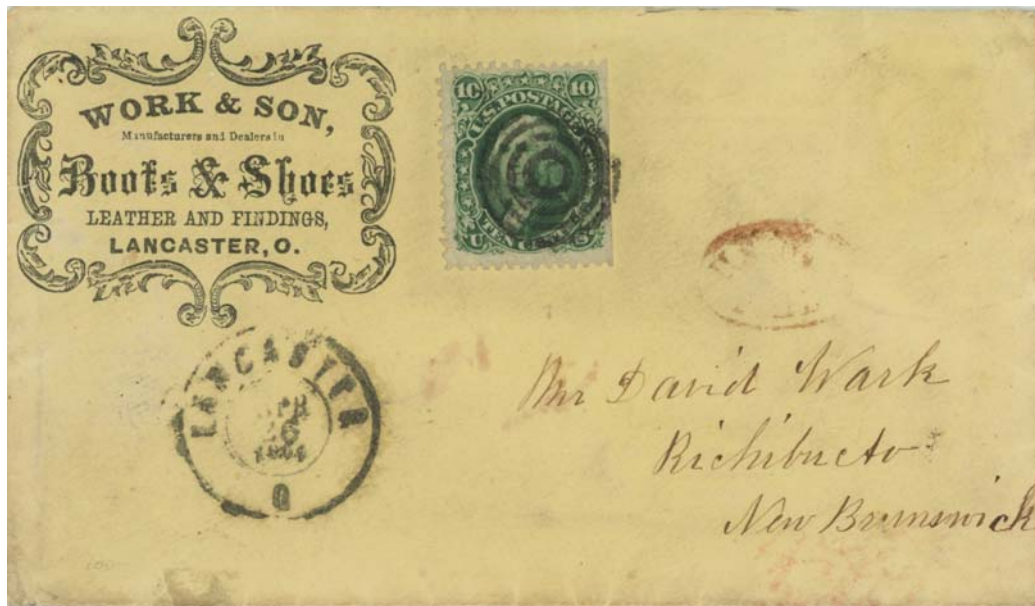 WORK & SON,
Manufacturers and Dealers in
Boots & Shoes
LEATHER AND FINDINGS,
LANCASTER, O.
10 10
U.S. POSTAGE
TEN CENTS
U S
LANCASTER
APR
26
O
Mr David Wark
Richibucto
New Brunswick